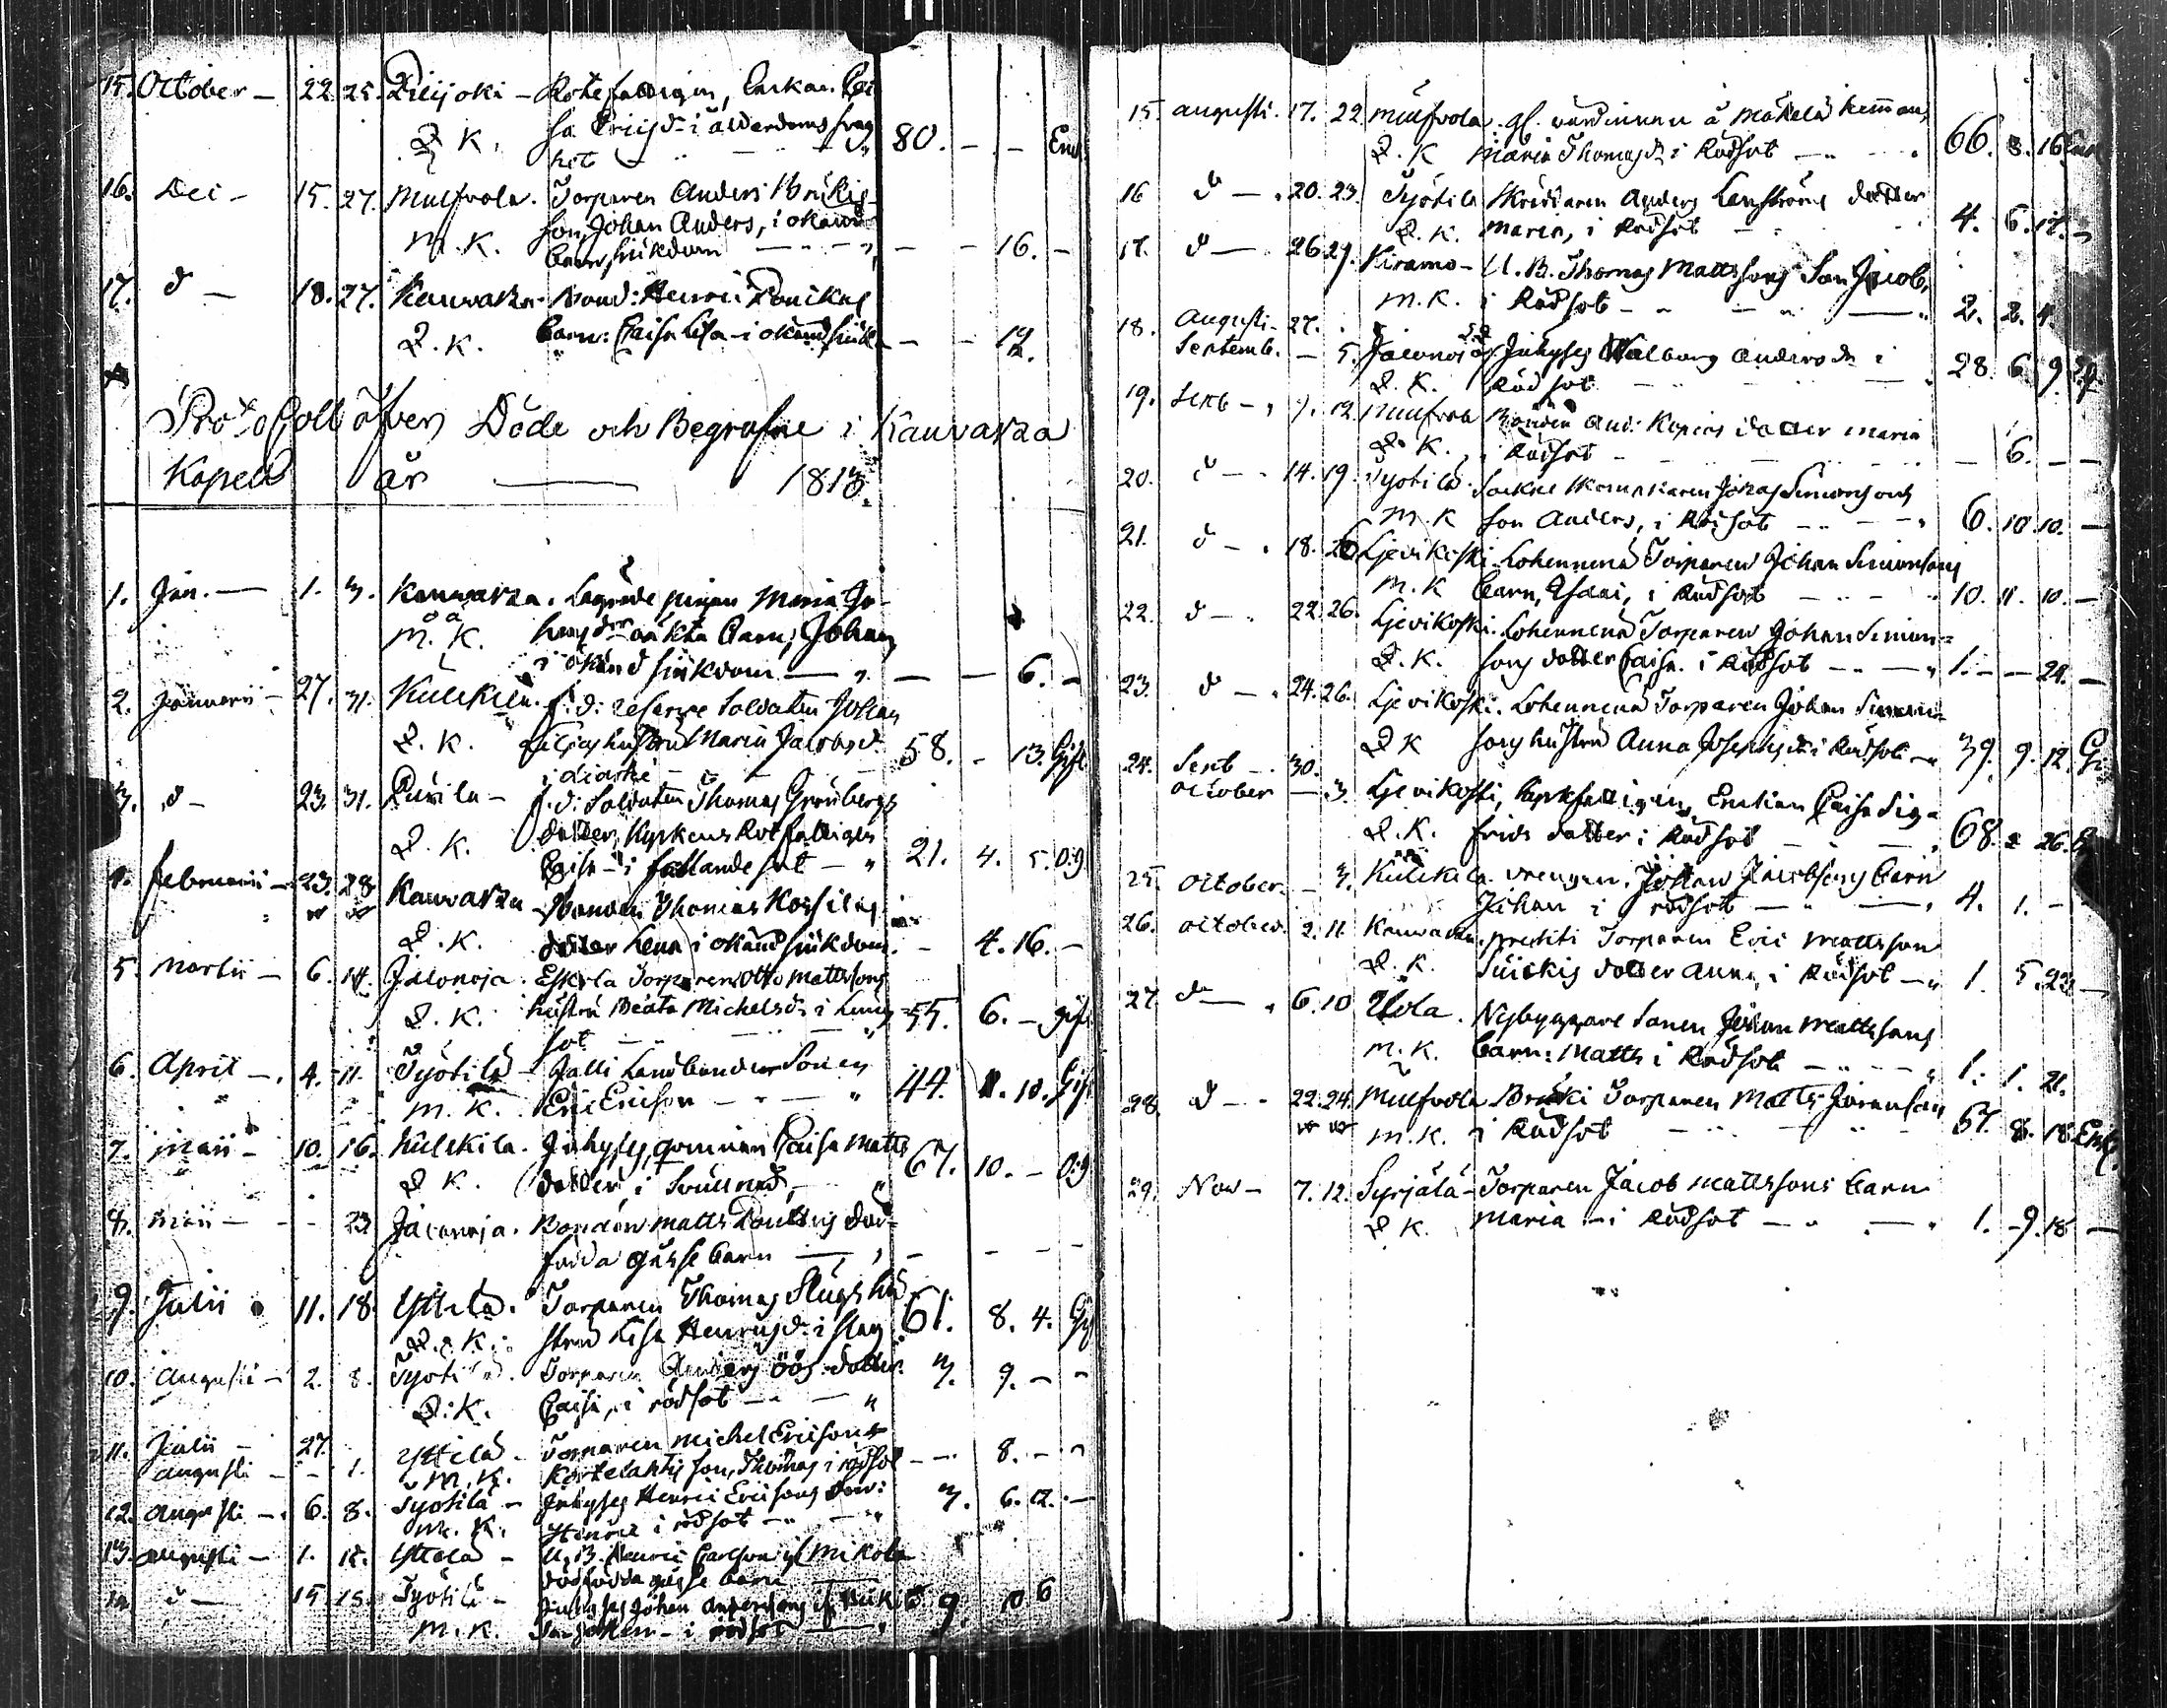 15. October - 22. 25. Piilijoki - Rotefattigen, Enkan Cai
Q. K. sa Ericsd:r i ålderdoms svag
het - 80. - - Enk
16. Dec - 15. 27. Mullvola. Torparen Anders Brukis
M. K. son, Johan Anders, i okänd
barnsjukdom - - 16. -
17. d - 18. 27. Kauvatza. Bond: Henric Ronikas
Q. K. barn: Caisa Lisa - i okänd sjukd - - 12.
Protocoll öfver Döde och Begrafne i Kauvatza
Kapell år 1813.
1. Jan. - 1. 3. Kauvatza. Lägrade pigan Maria Jo-
M. K. hansd:r oäkta barn, Johan,
i okänd sjukdom - " - - 6. -
2. Januarii - 27. 31. Kulckila. f. d: reserve Soldaten Johan
Q. K. Liljas hustru Maria Jacobsd: 58. - 13. Gift
i diarhé
3. d - 23. 31. Puvila - f. d: Soldaten Thomas Grönbergs
Q. K. dotter, Kyrkans Rotfattiges
Caisa - i fallande sot - " 21. 4. 5. Og
4. februarii - 23. 28. Kauvatza Bonden Thomas Kossilas
Q. K. dotter Lena i okänd sjukdom - 4. 16. -
5. Martii - 6. 14. Jalonoja. Eskola Torparen Otto Mattssons
Q. K. hustru Beata Michelsd:r i Lung 55. 6. - gift
sot
6. April - 4. 11. Työtilä - Jalli Landbonde Sonen
M. K. Eric Ericson - " 44. 1. 10. Gift
7. Maii - 10. 16. Kulckila. Inhyses qvinnan Caisa Matts
Q. K. dotter, i Svullnad, - " 67. 10. - Og
8. Maii - - 23. Jalonoja. Bonden Matts Poutus död-
födda gosse barn - - - - -
9. Julii 11. 18. Yttilä. Torparen Thomas Slugs hu
Q. K. stru Lisa Henricsd: i slag 61. 8. 4. Gif
10. Augusti - 2. 8. Työtilä. Torparen Anders Öös dotter
Q: K. Caisa, i rödsot - " 3. 9. - -
11. Julii - 27. Yttilä - Torparen Michel Ericsons
Augusti - - 1. M. K. Kortelahtis son, Thomas i rödsot - - 8. - -
12. Augusti - 6. 8. Työtilä - Inhyses Henric Ericsons son:
M. K. Henric i rödsot - " 3. 6. 12. -
13. Augusti - 1. 15. Yttilä - U. B. Henric Carlson på Mikola
dödfödda gosse barn
14. d - 15. 15. Työtilä - Inhyses Johan Anderssons
M. K. i rödsot 9. 10 6
15. Augusti. 17. 22. Mullvola. gl. värdinnan å Mäkelä hemman,
Q. K Maria Thomasd:r i Rödsot - " 66. 3. 16. Enk
16 d - 20. 23. Työtilä Skräddaren Anders Lenströms dotter
Q. K. Maria, i Rödsot 4. 6. 17. -
17. d - 26. 29. Kiramo - U. B. Thomas Mattssons Son Jacob,
M. K. i Rödsot - " 2. 2. 4.
18. Augusti - 27.
Septemb. - 5. Jalonoja Inhyses Walborg Andersd:r i
Q. K. Rödsot 28. 6. 9. Og
19. Sept - 9. 12. Mullvola Bonden And: Kepias dotter Maria
Q. K. i Rödsot - - 6. - -
20. d - 14. 19. Työtilä. Sockne Skomakaren Jonas Simonssons
M. K son Anders, i Rödsot - " 6. 10 10. -
21. d - 18. 26 Ljevikoski - Lohennenä Torparen Johan Simonsons
M. K barn, Esaai, i Rödsot - " 10. 11. 10. -
22. d - 22. 26. Ljevikoski. Lohennenä Torparen Johan Simon-
Q. K. sons dotter Caisa. i Rödsot - " 1. - 24. -
23. d - 24. 26. Ljevikoski. Lohennenä Torparen Johan Simon-
Q K sons hustru Anna Josephsd:r i Rödsot - " 39. 9. 12. Gi
24. Sept - 30.
October - 3. Ljevikoski, Kyrkfattigen, Enkan Caisa Sig-
Q. K. frids dotter i Rödsot - 68. 2 26. E
25. October. - 3. Kulckila. Drengen, Johan Jacobsons barn
Johan i rödsot - " 4. 1. -
26. October. 2. 11 Kauvatza. Prediti Torparen Eric Mattsson
Q. K. Suickis dotter Anna, i Rödsot - " 1. 5. 23. -
27. d - 6. 10 Utola. Nybyggare Sonen Johan Mattssons
M. K. barn: Matts i Rödsot - " 1. 1. 21.
28. d - 22. 24. Mullvola Bruki Torparen Matts Göransson
M. K. i Rödsot 57. 8. 18. Enk.
29. Nov - 7. 12. Syrjälä - Torparen Jacob Mattssons barn
Q K. Maria - i Rödsot - " 1. 9. 18 -